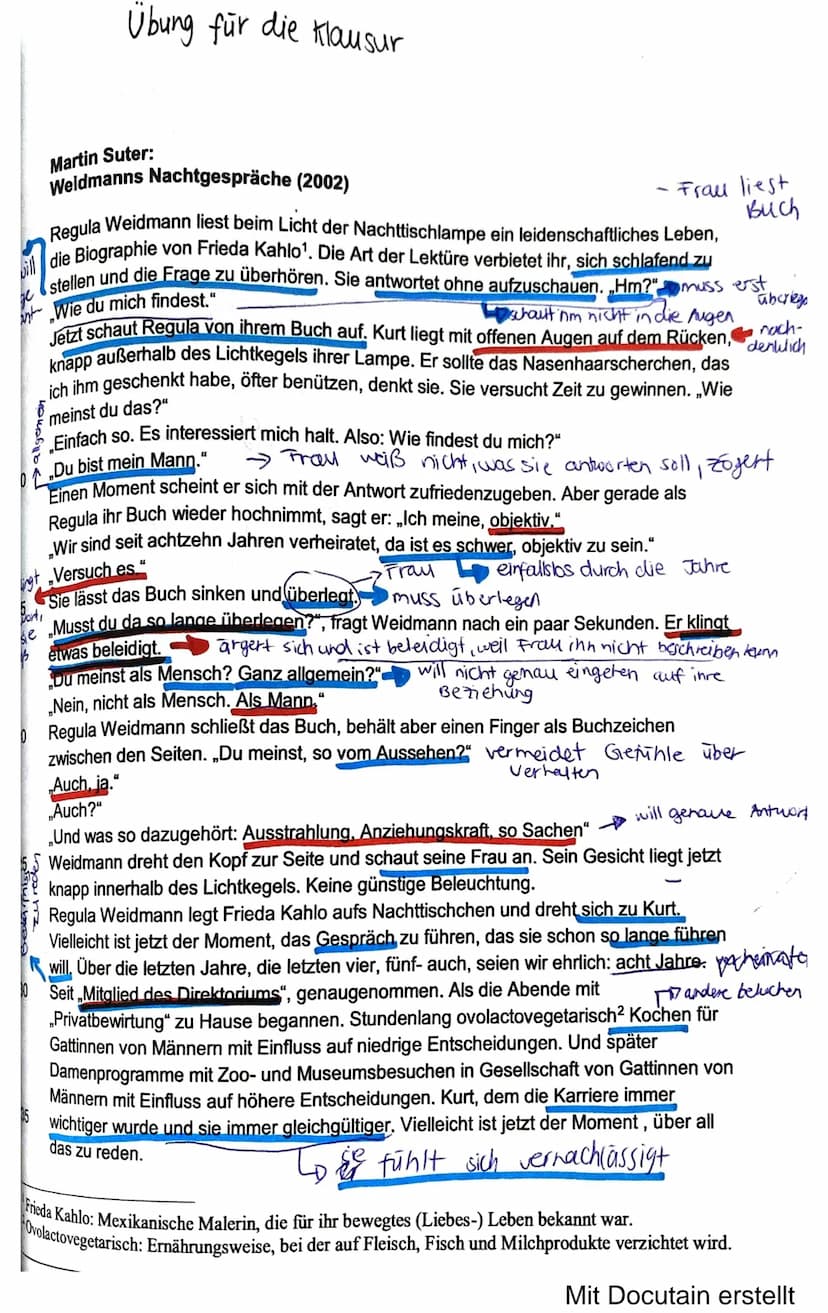 Übung für die Klausur
Martin Suter:
Weidmanns Nachtgespräche (2002)
- Frau liest
Buch
Regula Weidmann liest beim Licht der Nachttischlampe ein leidenschaftliches Leben,
die Biographie von Frieda Kahlo¹. Die Art der Lektüre verbietet ihr, sich schlafend zu
stellen und die Frage zu überhören. Sie antwortet ohne aufzuschauen. „Hm?“ muss erst
überlegen
„Wie du mich findest.“
schaut ihm nicht in die Augen
Jetzt schaut Regula von ihrem Buch auf. Kurt liegt mit offenen Augen auf dem Rücken, nach-
denklich
knapp außerhalb des Lichtkegels ihrer Lampe. Er sollte das Nasenhaarscherchen, das
ich ihm geschenkt habe, öfter benützen, denkt sie. Sie versucht Zeit zu gewinnen. „Wie
meinst du das?“
allgemein
„Einfach so. Es interessiert mich halt. Also: Wie findest du mich?“
„Du bist mein Mann.“ → Frau weiß nicht, was sie antworten soll, zögert
Einen Moment scheint er sich mit der Antwort zufriedenzugeben. Aber gerade als
Regula ihr Buch wieder hochnimmt, sagt er: „Ich meine, objektiv.“
„Wir sind seit achtzehn Jahren verheiratet, da ist es schwer, objektiv zu sein.“
„Versuch es.“ Frau einfallslos durch die Jahre
Sie lässt das Buch sinken und überlegt. muss überlegen
„Musst du da so lange überlegen?“, fragt Weidmann nach ein paar Sekunden. Er klingt
etwas beleidigt. ärgert sich und ist beleidigt, weil Frau ihn nicht beschreiben kann
„Du meinst als Mensch? Ganz allgemein?“ will nicht genau eingehen auf ihre
Beziehung
„Nein, nicht als Mensch. Als Mann.“
Regula Weidmann schließt das Buch, behält aber einen Finger als Buchzeichen
zwischen den Seiten. „Du meinst, so vom Aussehen?“ vermeidet Gefühle über
Verhalten
„Auch, ja.“
„Auch?“
„Und was so dazugehört: Ausstrahlung, Anziehungskraft, so Sachen“ → will genaue Antwort
Weidmann dreht den Kopf zur Seite und schaut seine Frau an. Sein Gesicht liegt jetzt
knapp innerhalb des Lichtkegels. Keine günstige Beleuchtung.
Regula Weidmann legt Frieda Kahlo aufs Nachttischchen und dreht sich zu Kurt.
Vielleicht ist jetzt der Moment, das Gespräch zu führen, das sie schon so lange führen
zu reden
will. Über die letzten Jahre, die letzten vier, fünf- auch, seien wir ehrlich: acht Jahre.
Seit „Mitglied des Direktoriums“, genaugenommen. Als die Abende mit andere bekochen
„Privatbewirtung“ zu Hause begannen. Stundenlang ovolactovegetarisch² Kochen für
Gattinnen von Männern mit Einfluss auf niedrige Entscheidungen. Und später
Damenprogramme mit Zoo- und Museumsbesuchen in Gesellschaft von Gattinnen von
Männern mit Einfluss auf höhere Entscheidungen. Kurt, dem die Karriere immer
wichtiger wurde und sie immer gleichgültiger. Vielleicht ist jetzt der Moment , über all
das zu reden.
sie fühlt sich vernachlässigt
Frieda Kahlo: Mexikanische Malerin, die für ihr bewegtes (Liebes-) Leben bekannt war.
Ovolactovegetarisch: Ernährungsweise, bei der auf Fleisch, Fisch und Milchprodukte verzichtet wird.
Mit Docutain erstellt